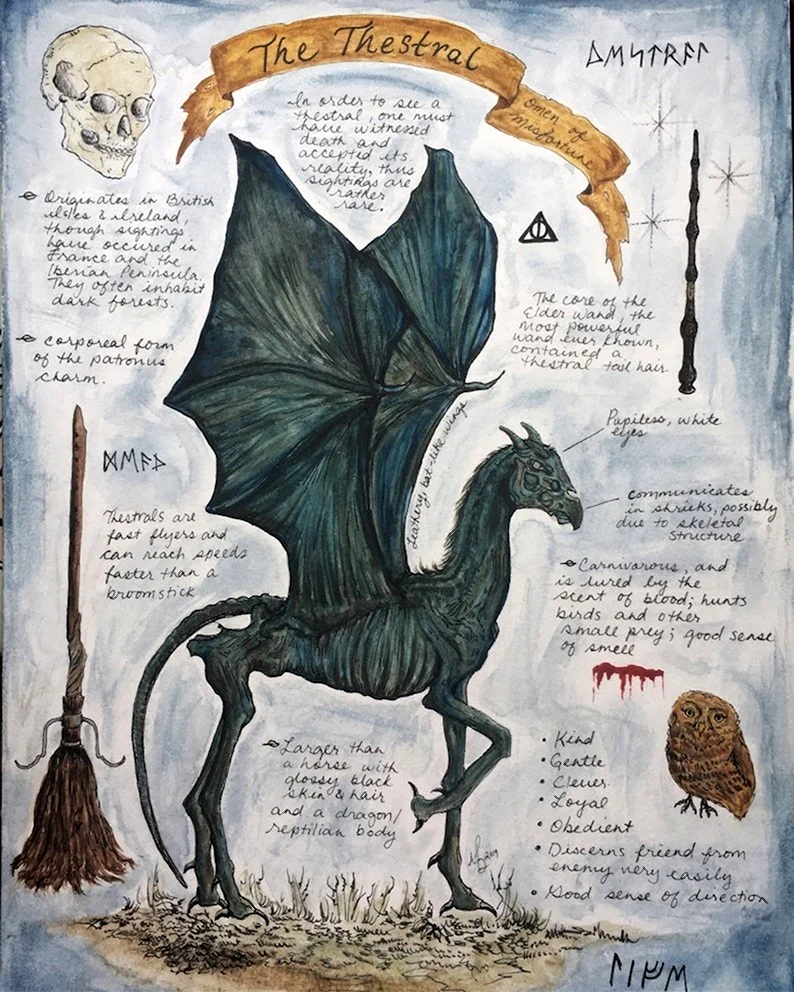 The Thestral
Omen of
Misfortune
ᚦᛖᛊᛏᚱᚨᛚ
In order to see a
thestral, one must
have witnessed
death and
accepted its
reality, thus
sightings are
rather
rare.
Originates in British
Isles & Ireland,
though sightings
have occured in
France and the
Iberian Peninsula.
They often inhabit
dark forests.
corporeal form
of the patronus
charm.
The core of the
Elder Wand, the
most powerful
wand ever known,
contained a
thestral tail hair.
Pupiless, white
eyes
Leathery, bat-like wings
ᛞᛖᚨᚦ
communicates
in shrieks, possibly
due to skeletal
structure
Thestrals are
fast flyers and
can reach speeds
faster than a
broomstick
Carnivarous, and
is lured by the
scent of blood; hunts
birds and other
small prey; good sense
of smell
Larger than
a horse with
glossy black
skin & hair
and a dragon/
reptilian body
• Kind
• Gentle
• Clever
• Loyal
• Obedient
• Discerns friend from
enemy very easily
• Good sense of direction
ᛚᛁᚠᛖ